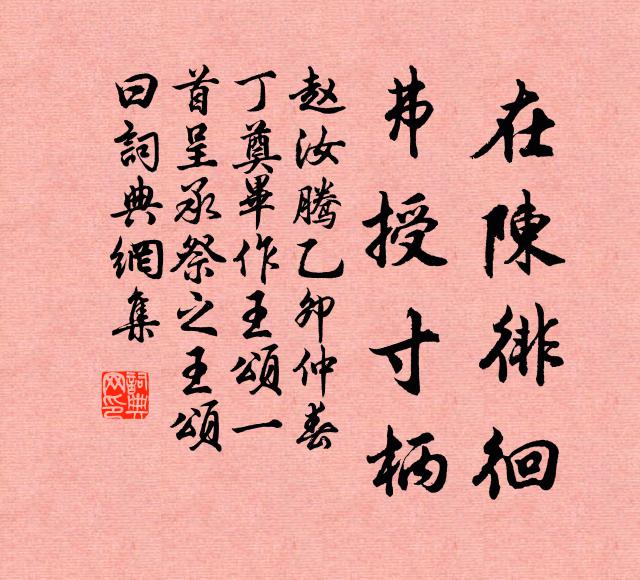 在陳徘徊
弗授寸柄
赵汝騰乙卯仲春
丁奠畢作王頌一
首呈承祭之王頌
曰詞典網集
詞典
网印